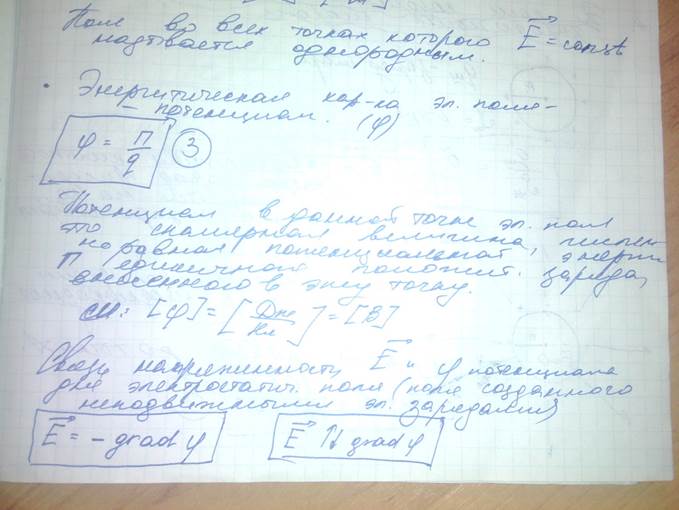 Поле во всех точках которого E⃗ = const
называется однородным.
• Энергитическая хар-ка эл. поля –
– потенциал. (φ)
φ = П/q ③
Потенциал в данной точке эл. поля
это скалярная величина, числен
но равная потенциальной энерги
П единичного положит. заряда,
внесенного в эту точку.
СИ: [φ] = [Дж/Кл] = [В]
Связь напряженность E⃗ и φ потенциала
для электростатич. поля (поля созданного
неподвижными эл. зарядами)
E⃗ = - grad φ E⃗ ↑↓ grad φ